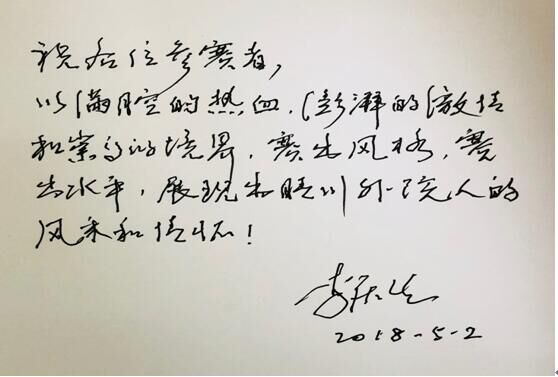 祝各位参赛者，
以满腔的热血、澎湃的激情
和崇高的境界，赛出风格，赛
出水平，展现出四川外院人的
风采和情怀！
李
2018-5-2